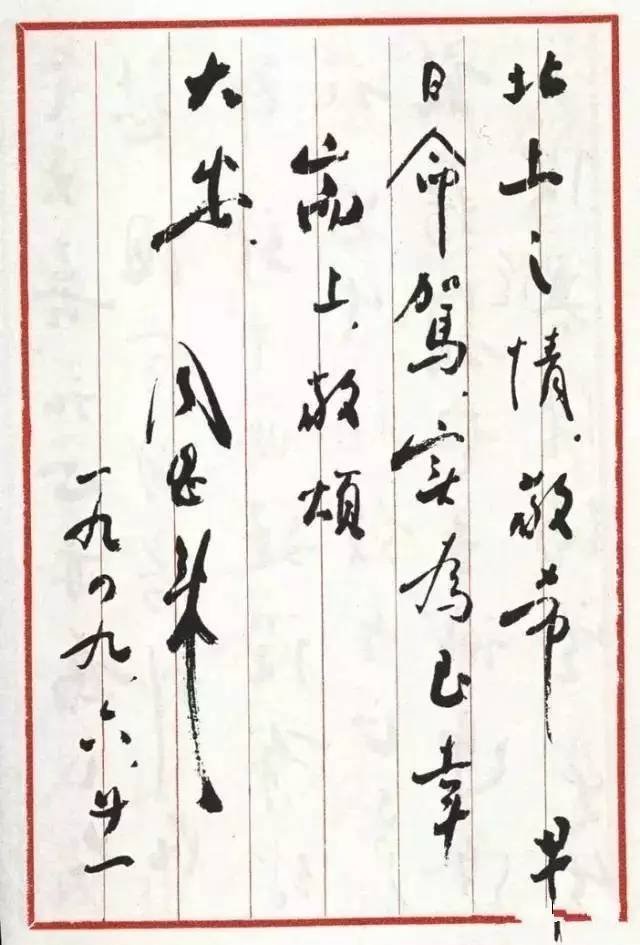 北上之情，敬希早
日命駕，实為至幸
耑上，敬頌
大安，
周恩来
一九四九、六、廿一